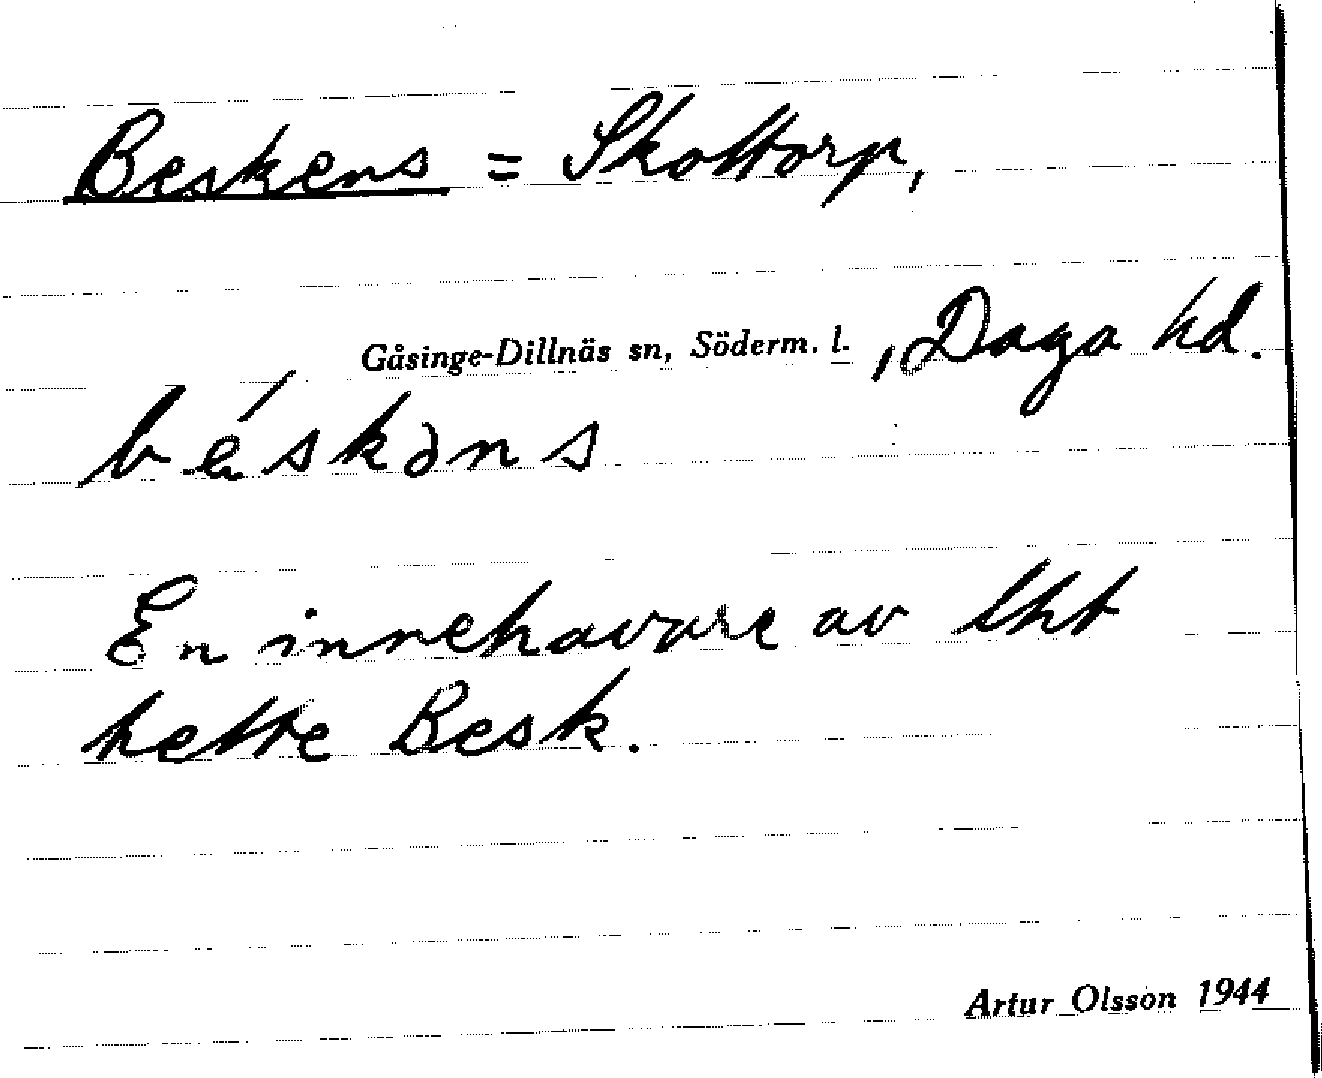 Beskens = Skottorp,
Gåsinge-Dillnäs sn, Söderm. l. , Daga hd.
béskəns
En innehavare av lht
hette Besk.
Artur Olsson 1944